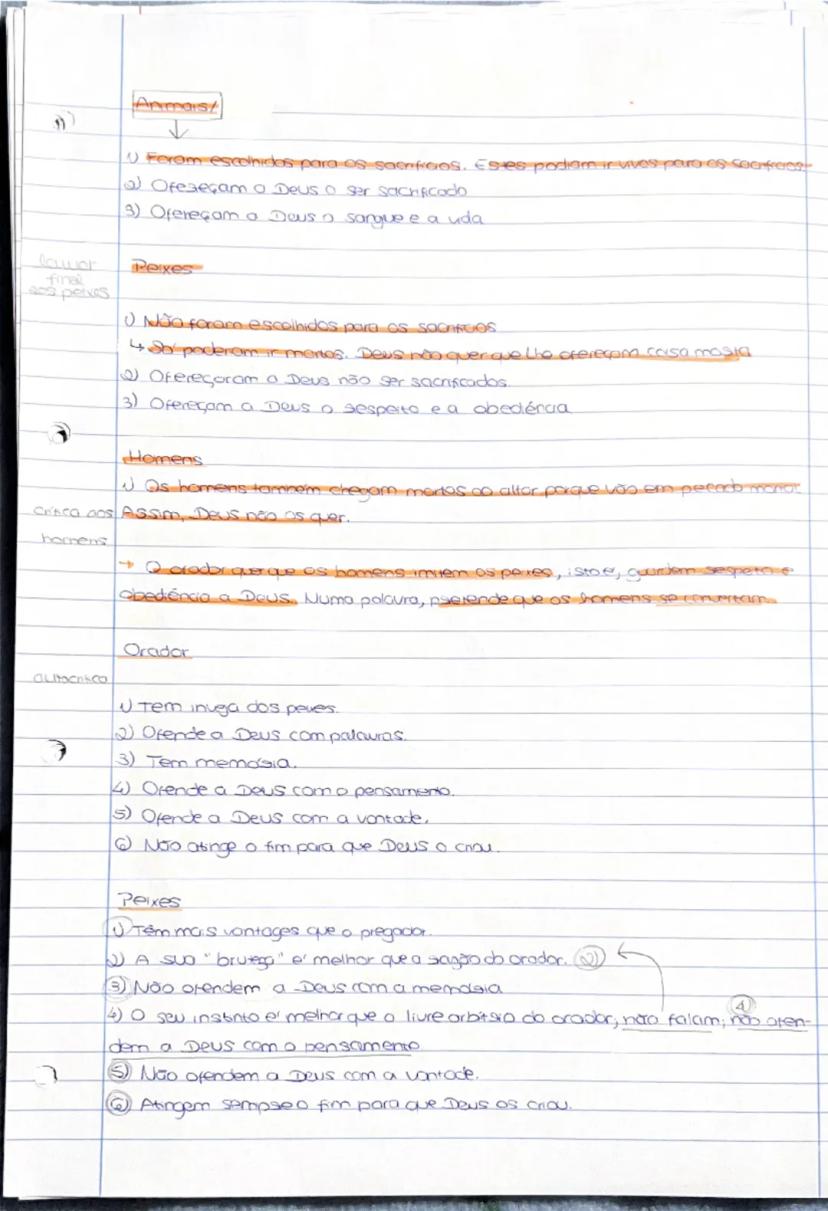 Animais/
1) Foram escolhidos para os sacrifícios. Estes podiam ir vivos para os sacrifícios.
2) Ofereçam a Deus o ser sacrificado
3) Ofereçam a Deus o sangue e a vida
louvor
final
aos peixes
Peixes
1) Não foram escolhidos para os sacrifícios
↳ Só poderam ir mortos. Deus não quer que lhe ofereçam coisa morta
2) Ofereçoram a Deus não ser sacrificados.
3) Ofereçam a Deus o respeito e a obediência
Homens
1) Os homens também chegam mortos ao altar porque vão em pecado mortal.
crítica aos
homens
Assim, Deus não os quer.
→ O orador quer que os homens imitem os peixes, isto é, guardem respeito e
obediência a Deus. Numa palavra, pretende que os homens se convertam.
Orador
autocrítica
1) Tem inveja dos peixes.
2) Ofende a Deus com palavras.
3) Tem memória.
4) Ofende a Deus com o pensamento.
5) Ofende a Deus com a vontade.
6) Não atinge o fim para que Deus o criou.
Peixes
1) Têm mais vontages que o pregador.
2) A sua "bruteza" é melhor que a razão do orador. (2)
3) Não ofendem a Deus com a memória
4) O seu instinto é melhor que o livre arbítrio do orador, não falam; (4) não ofen-
dem a Deus com o pensamento
5) Não ofendem a Deus com a vontade.
6) Atingem sempre o fim para que Deus os criou.